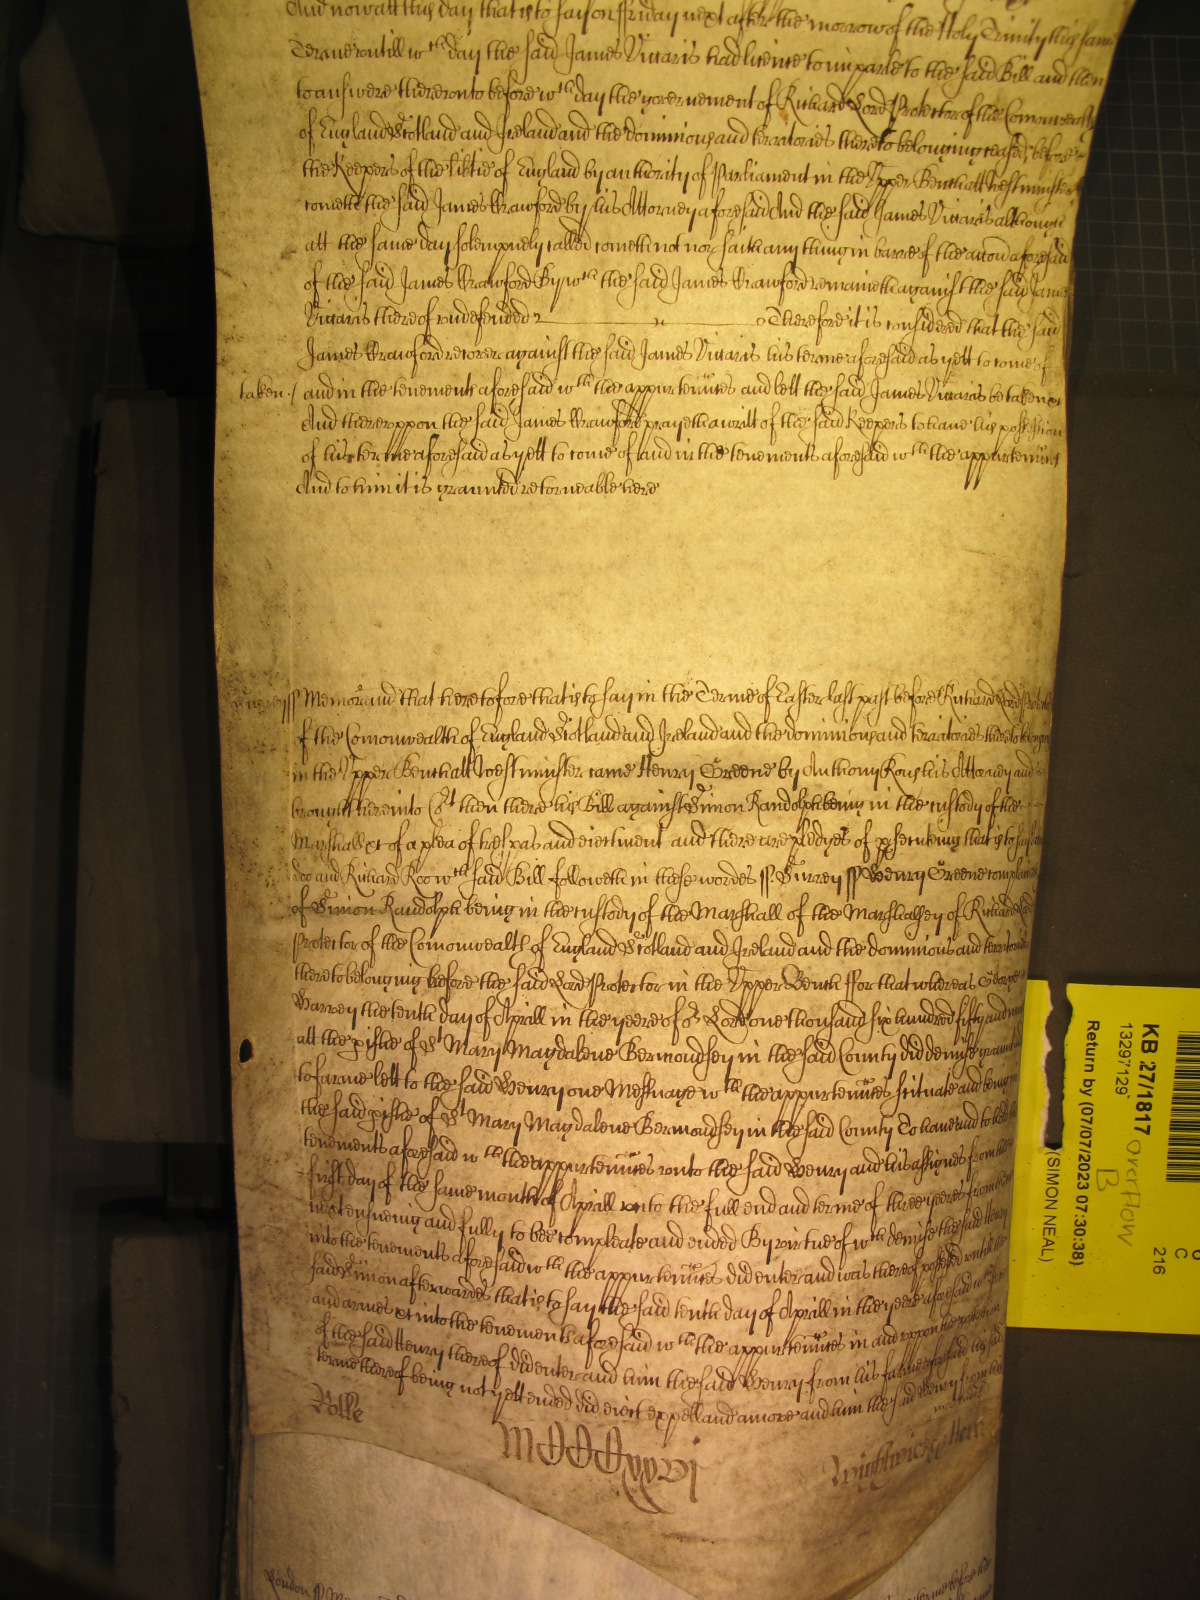 And now att this day that is to say on Friday next after the morrow of the Holy Trinity this same
Terme untill wch day the said James Viccaris had licence to imparle to the said Bill and then
to answere thereunto before wch day the governement of Richard Lord Protector of the Comonwealth
of England Scotland and Ireland and the dominions and territories thereto belonging ceased before
the Keepers of the libtie of England by authority of Parliament in the Upper Bench att Westminster
cometh the said James Crawford by his Attorney aforesaid And the said James Viccaris although
att the same day solempnely called cometh not nor saith any thing in barre of the accon aforesaid
of the said James Crawford By wch the said James Crawford remaineth against the said James
Viccaris thereof undefended Therefore it is considered that the said
James Crawford recover against the said James Viccaris his terme aforesaid as yett to come of
taken / and in the tenements aforesaid wth the appurtennces and lett the said James Viccaris be taken &c
And thereuppon the said James Crawford prayeth a writt of the said Keepers to have his possession
of his terme aforesaid as yett to come of and in the tenements aforesaid wth the appurtennces
And to him it is graunted retorneable here
Surrey ss Memorand that heretofore that is to say in the Terme of Easter last past before Richard Lord Protector
of the Comonwealth of England Scotland and Ireland and the dominions and territories thereto belonging
in the Upper Bench att Westminster came Henry Greene by Anthony Rous his Attorney and
brought here into Ct then there his Bill against Simon Randolph being in the custody of the
Marshall &c of a plea of trespas and eiectment and there are pledges of psecuting that is to say John
doo and Richard Roo wch said Bill followeth in these wordes ss Surrey ss Henry Greene complaines
of Simon Randolph being in the custody of the Marshall of the Marshalsey of Richard Lord
Protector of the Comonwealth of England Scotland and Ireland and the dominions and territories
thereto belonging before the said Lord Protector in the Upper Bench For that whereas George
Warren the tenth day of Aprill in the yeere of or Lord one thousand six hundred fifty and nine
att the pishe of St Mary Magdalene Bermondsey in the said County did demise graunt and
to farme lett to the said Henry one Messuage wth the appurtennces scituate and being in
the said pishe of St Mary Magdalene Bermondsey in the said County To have and to hold the
tenements aforesaid wth the appurtennces unto the said Henry and his assignes from the
first day of the same month of Aprill unto the full end and terme of three yeeres from thence
next ensueing and fully to bee compleate and ended By virtue of wch demise the said Henry
into the tenements aforesaid wth the appurtennces did enter and was thereof possessed untill the
said Simon afterwardes that is to say the said tenth day of Aprill in the yeere aforesaid wth force
and armes &c into the tenements aforesaid wth the appurtennces in and uppon the possession
of the said Henry thereof did enter and him the said Henry from his farme aforesaid his said
terme thereof being not yett ended did eiect expell and amove and him the said Henry from his
Rolle
Wightwicke
London ss
KB 27/1817
13297129
Return by (07/07/2023 07:30:38)
(SIMON NEAL)
Overflow
B
C
216